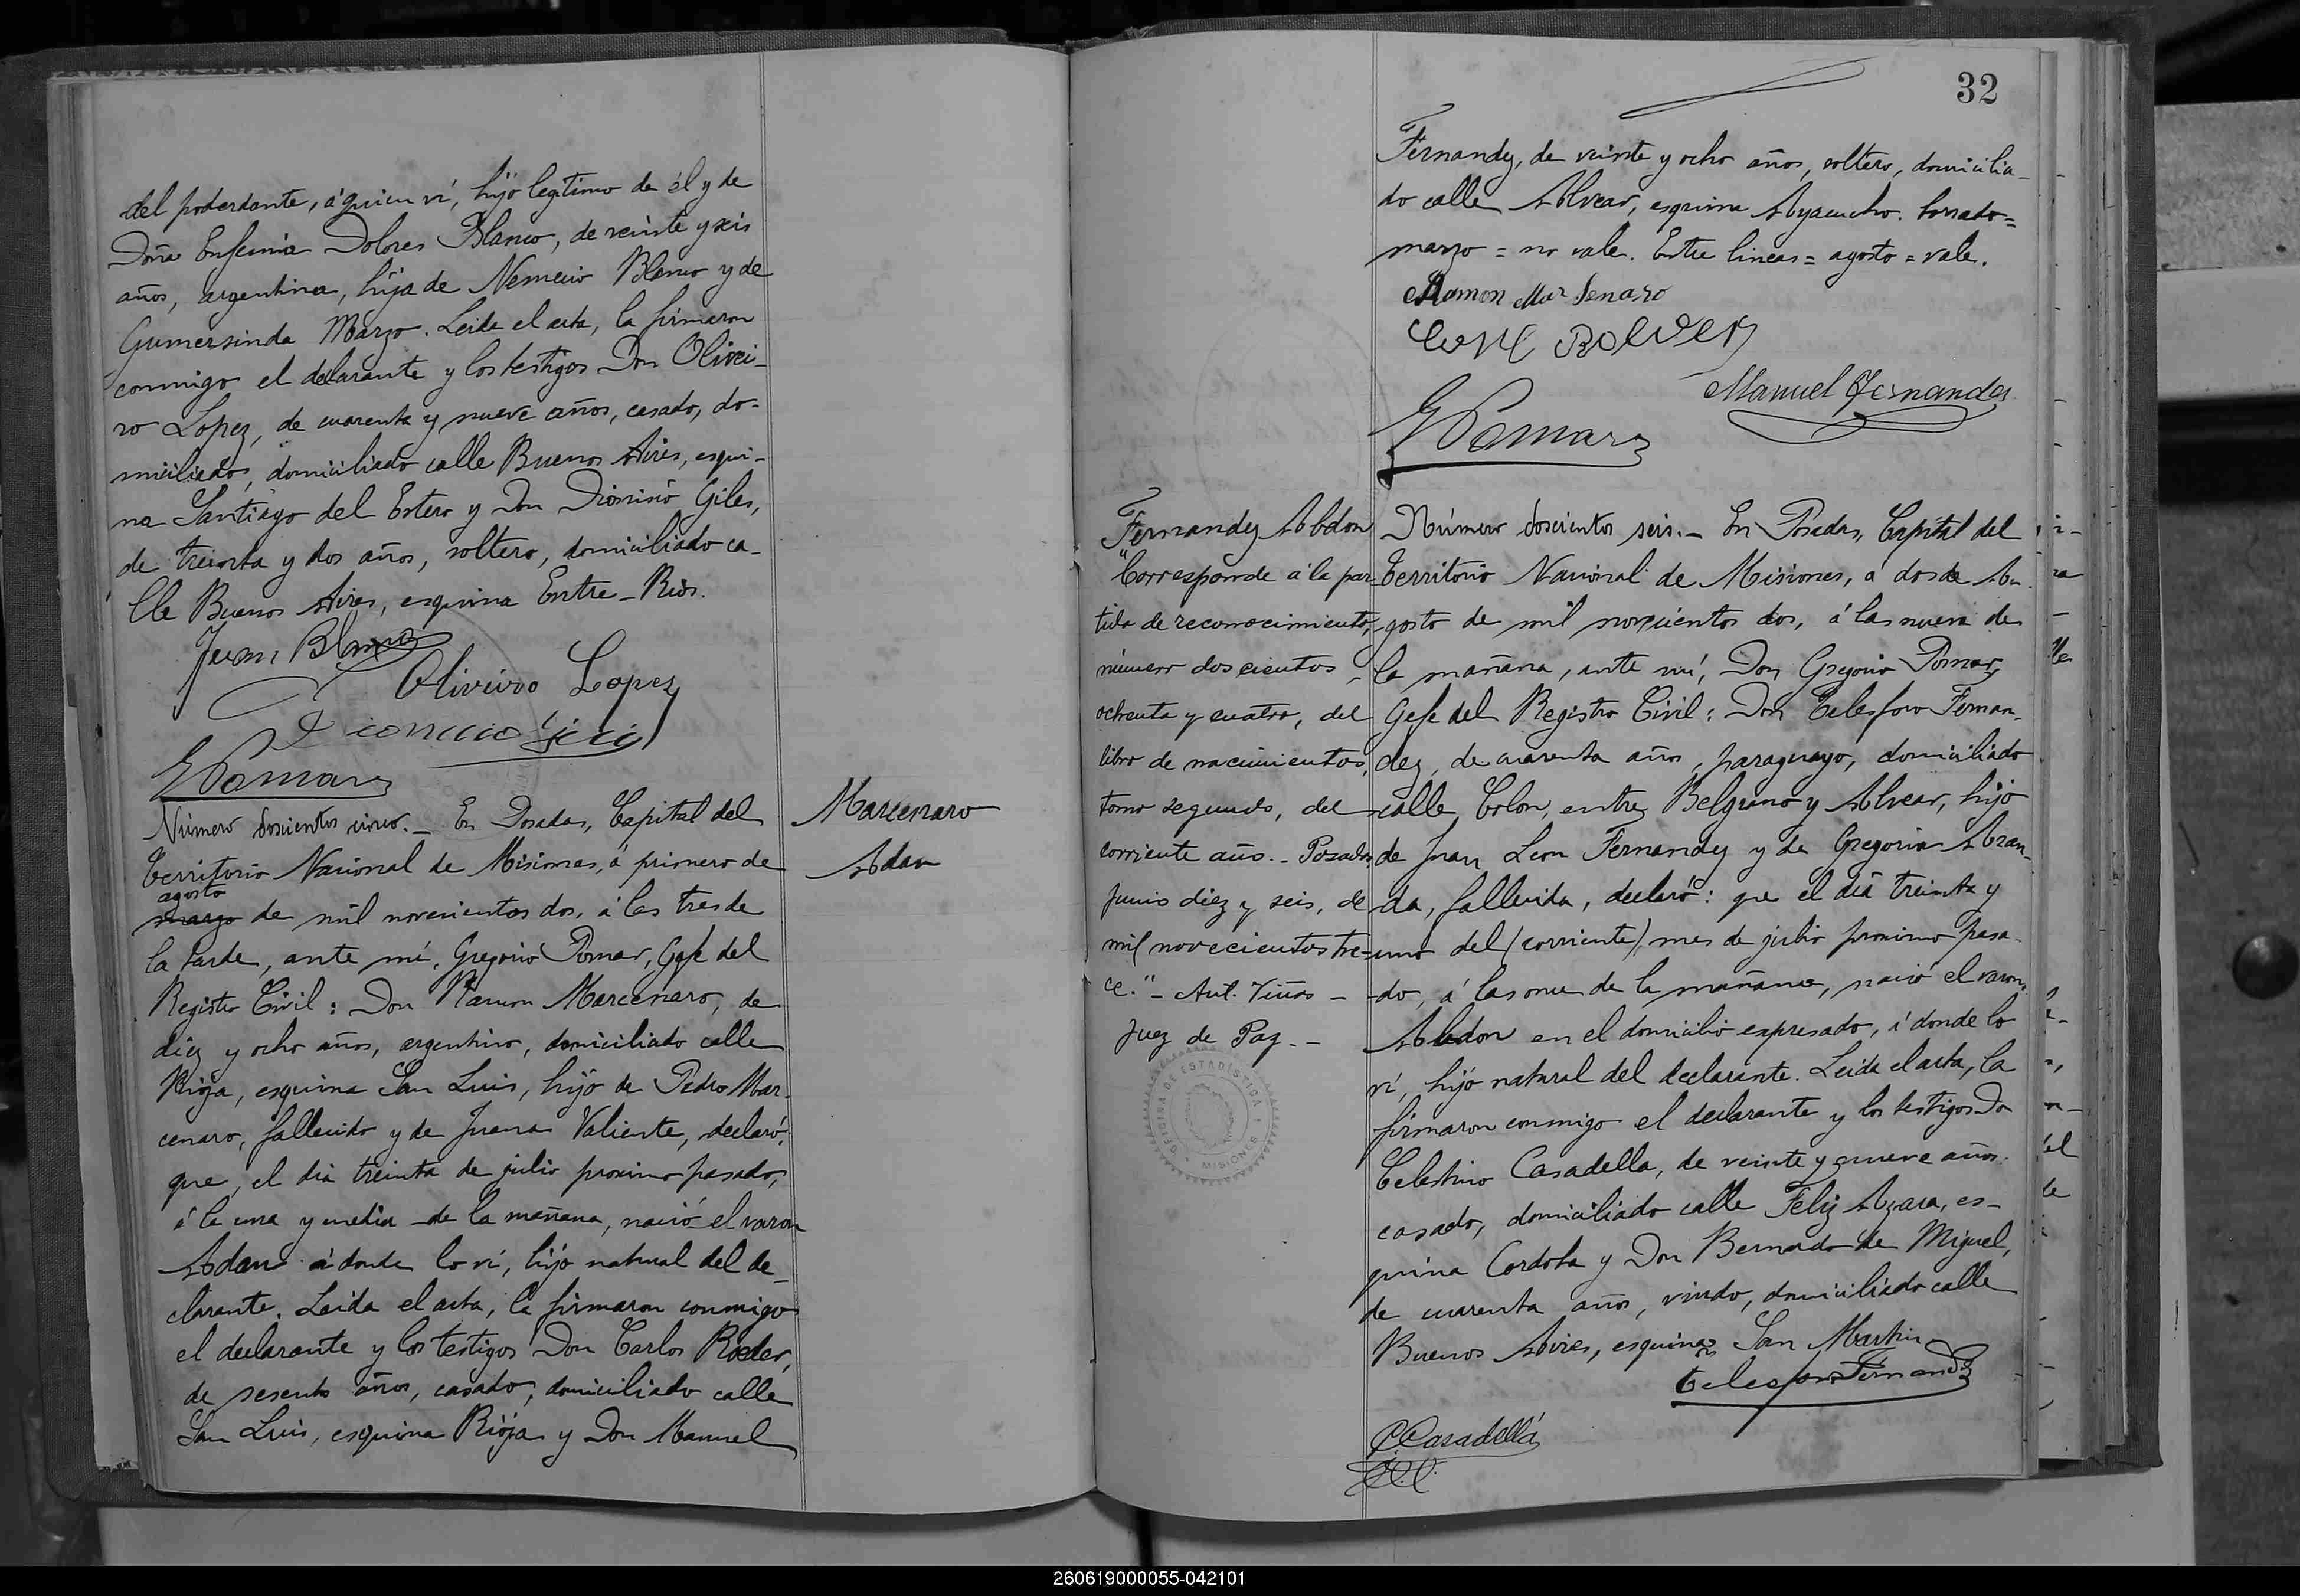 del poderdante, á quien ví, hijo legitimo de él y de
Doña Eufemia Dolores Blanco, de veinte y seis
años, argentina, hija de Nemecio Blanco y de
Gumersinda Marzo. Leida el acta, la firmaron
conmigo el declarante y los testigos Don Olivei-
ro Lopez, de cuarenta y nueve años, casado, do-
miciliado, domiciliado calle Buenos Aires, esqui-
na Santiago del Estero y Don Dionisio Giles,
de treinta y dos años, soltero, domiciliado ca-
lle Buenos Aires, esquina Entre-Rios.
Juan Blanco
Oliveiro Lopez
GPomar
Número doscientos cinco.- En Posadas, Capital del
Territorio Nacional de Misiones, á primero de
agosto
marzo de mil novecientos dos, á las tres de
la tarde, ante mí, Gregorio Pomar, Gefe del
Registro Civil: Don Ramon Marcenaro, de
diez y ocho años, argentino, domiciliado calle
Rioja, esquina San Luis, hijo de Pedro Mar-
cenaro, fallecido y de Juana Valiente, declaró:
que, el dia treinta de julio proximo pasado,
á la una y media de la mañana, nació el varon
Adan á donde lo ví, hijo natural del de-
clarante. Leida el acta, la firmaron conmigo
el declarante y los testigos Don Carlos Roeder,
de sesenta años, casado, domiciliado calle
San Luis, esquina Rioja y Don Manuel
Marcenaro
Adan
32
Fernandez, de veinte y ocho años, soltero, domicilia-
do calle Alvear, esquina Ayacucho. Borrado=
marzo = no vale. Entre lineas = agosto = vale.
Ramon Marsenaro
Manuel Fernandez
GPomar
Fernandez Abdon
"Corresponde á la par-
tida de reconocimiento,
número doscientos
ochenta y cuatro, del
libro de nacimientos,
tomo segundo, del
corriente año.- Posadas
Junio diez y seis, de
mil novecientos tre-
ce."- Ant. Viñas -
Juez de Paz.-
OFICINA DE ESTADISTICA Y
MISIONES
Número doscientos seis.- En Posadas, Capital del
Territorio Nacional de Misiones, á dos de A-
gosto de mil novecientos dos, á las nueve de
la mañana, ante mí, Don Gregorio Pomar,
Gefe del Registro Civil: Don Telesforo Fernan-
dez, de cuarenta años, paraguayo, domiciliado
calle Colon, entre Belgrano y Alvear, hijo
de Juan Leon Fernandez y de Gregoria Aran-
da, fallecida, declaró: que el dia treinta y
uno del (corriente) mes de julio proximo pasa-
do, á las once de la mañana, nació el varon
Abdon en el domicilio expresado, á donde lo
ví, hijo natural del declarante. Leida el acta, la
firmaron conmigo el declarante y los testigos Do
Celestino Casadella, de veinte y nueve años.
casado, domiciliado calle Feliz Azara, es-
quina Cordoba y Don Bernardo de Miguel,
de cuarenta años, viudo, domiciliado calle
Buenos Aires, esquina San Martin
Telesforo Fernandez
C. Casadellá
260619000055-042101